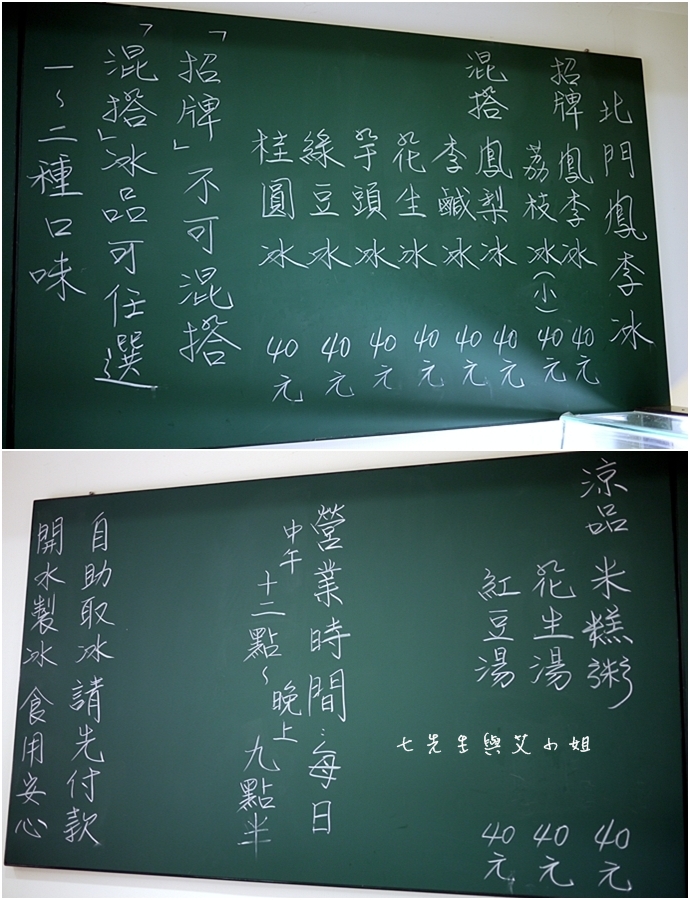 北門鳳李冰
招牌 鳳李冰 40元
荔枝冰(小) 40元
混搭 鳳梨冰 40元
李鹹冰 40元
花生冰 40元
芋頭冰 40元
綠豆冰 40元
桂圓冰 40元
「招牌」不可混搭
「混搭」冰品可任選
一~二種口味
涼品 米糕粥 40元
花生湯 40元
紅豆湯 40元
營業時間:每日
中午十二點~晚上九點半
自助取冰請先付款
開水製冰 食用安心
七先生與艾小姐